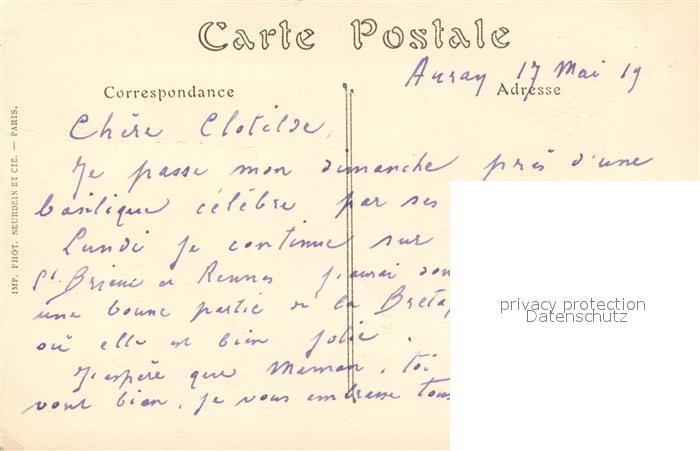 Carte Postale
Auray 17 Mai 19
Correspondance
Adresse
Chère Clotilde,
Je passe mon dimanche près d'une
basilique célèbre par ses
Lundi je continue sur
St. Brieuc et Rennes j'aurai
une bonne partie de la
où elle est bien jolie.
J'espère que Maman, toi
vont bien, je vous embrasse tous
IMP. PHOT. NEURDEIN ET CIE. — PARIS.
privacy protection
Datenschutz